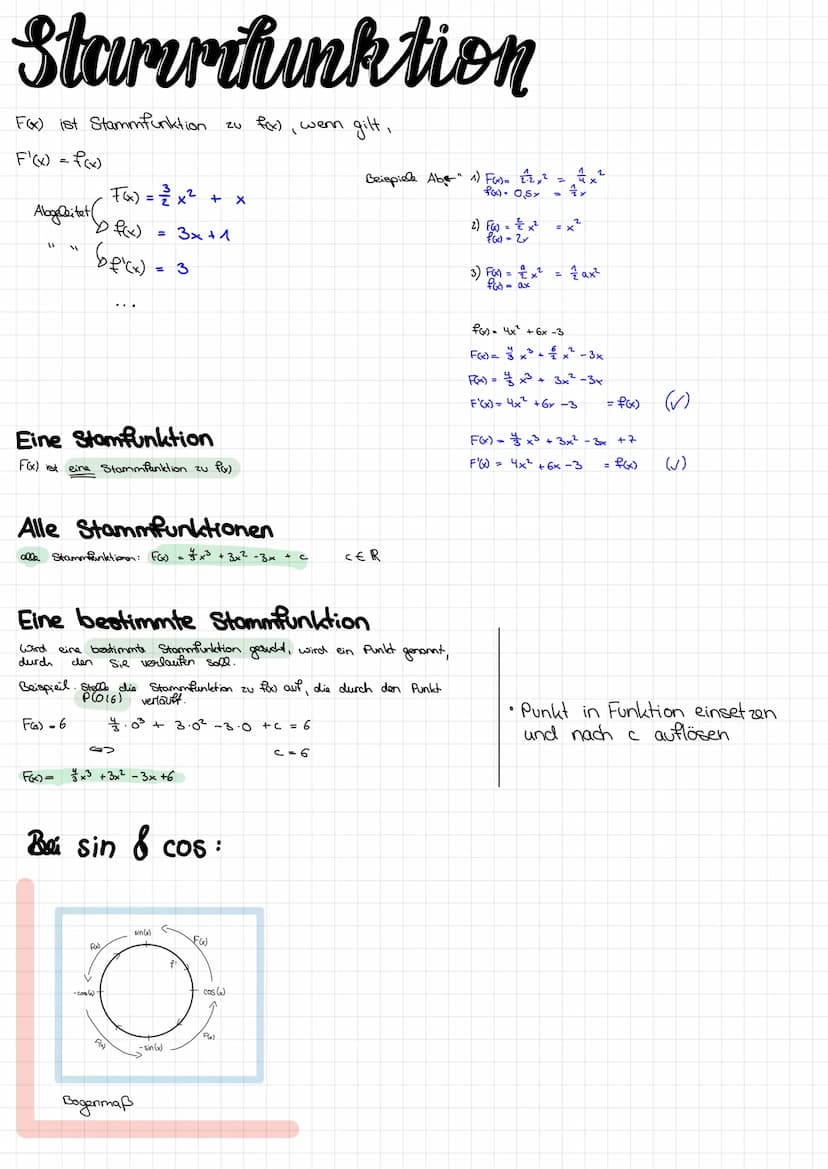 Stammfunktion
F(x) ist Stammfunktion zu f(x), wenn gilt,
F'(x) = f(x)
F(x) = 3/2 x² + x
Abgeleitet f(x) = 3x+1
" " f'(x) = 3
...
Beispiele
1) F(x) = x² = 1/4 x²
f(x) = 0,5x = 1/2 x
2) F(x) = 2/2 x² = x²
f(x) = 2x
3) F(x) = a/2 x² = 1/2 ax²
f(x) = ax
f(x) = 4x² + 6x -3
F(x) = 4/3 x³ + 6/2 x² - 3x
F(x) = 4/3 x³ + 3x² - 3x
F'(x) = 4x² + 6x - 3 = f(x) (✓)
F(x) = 4/3 x³ + 3x² - 3x + 7
F'(x) = 4x² + 6x - 3 = f(x) (✓)
Eine Stamfunktion
F(x) ist eine Stammfunktion zu f(x)
Alle Stammfunktionen
alle Stammfunktionen: F(x) = 4/3 x³ + 3x² - 3x + c c ∈ ℝ
Eine bestimmte Stammfunktion
Wird eine bestimmte Stammfunktion gesucht, wird ein Punkt genannt,
durch den sie verlaufen soll.
Beispiel: Stelle die Stammfunktion zu f(x) auf, die durch den Punkt
P(0|6) verläuft.
F(x) = 6 4/3 · 0³ + 3·0² - 3·0 + c = 6
<=> c = 6
F(x) = 4/3 x³ + 3x² - 3x + 6
• Punkt in Funktion einsetzen
und nach c auflösen
Bei sin & cos:
sin(x)
F(x)
F(x)
f'
-cos(x)
cos(x)
F(x)
F(x)
-sin(x)
Bogenmaß